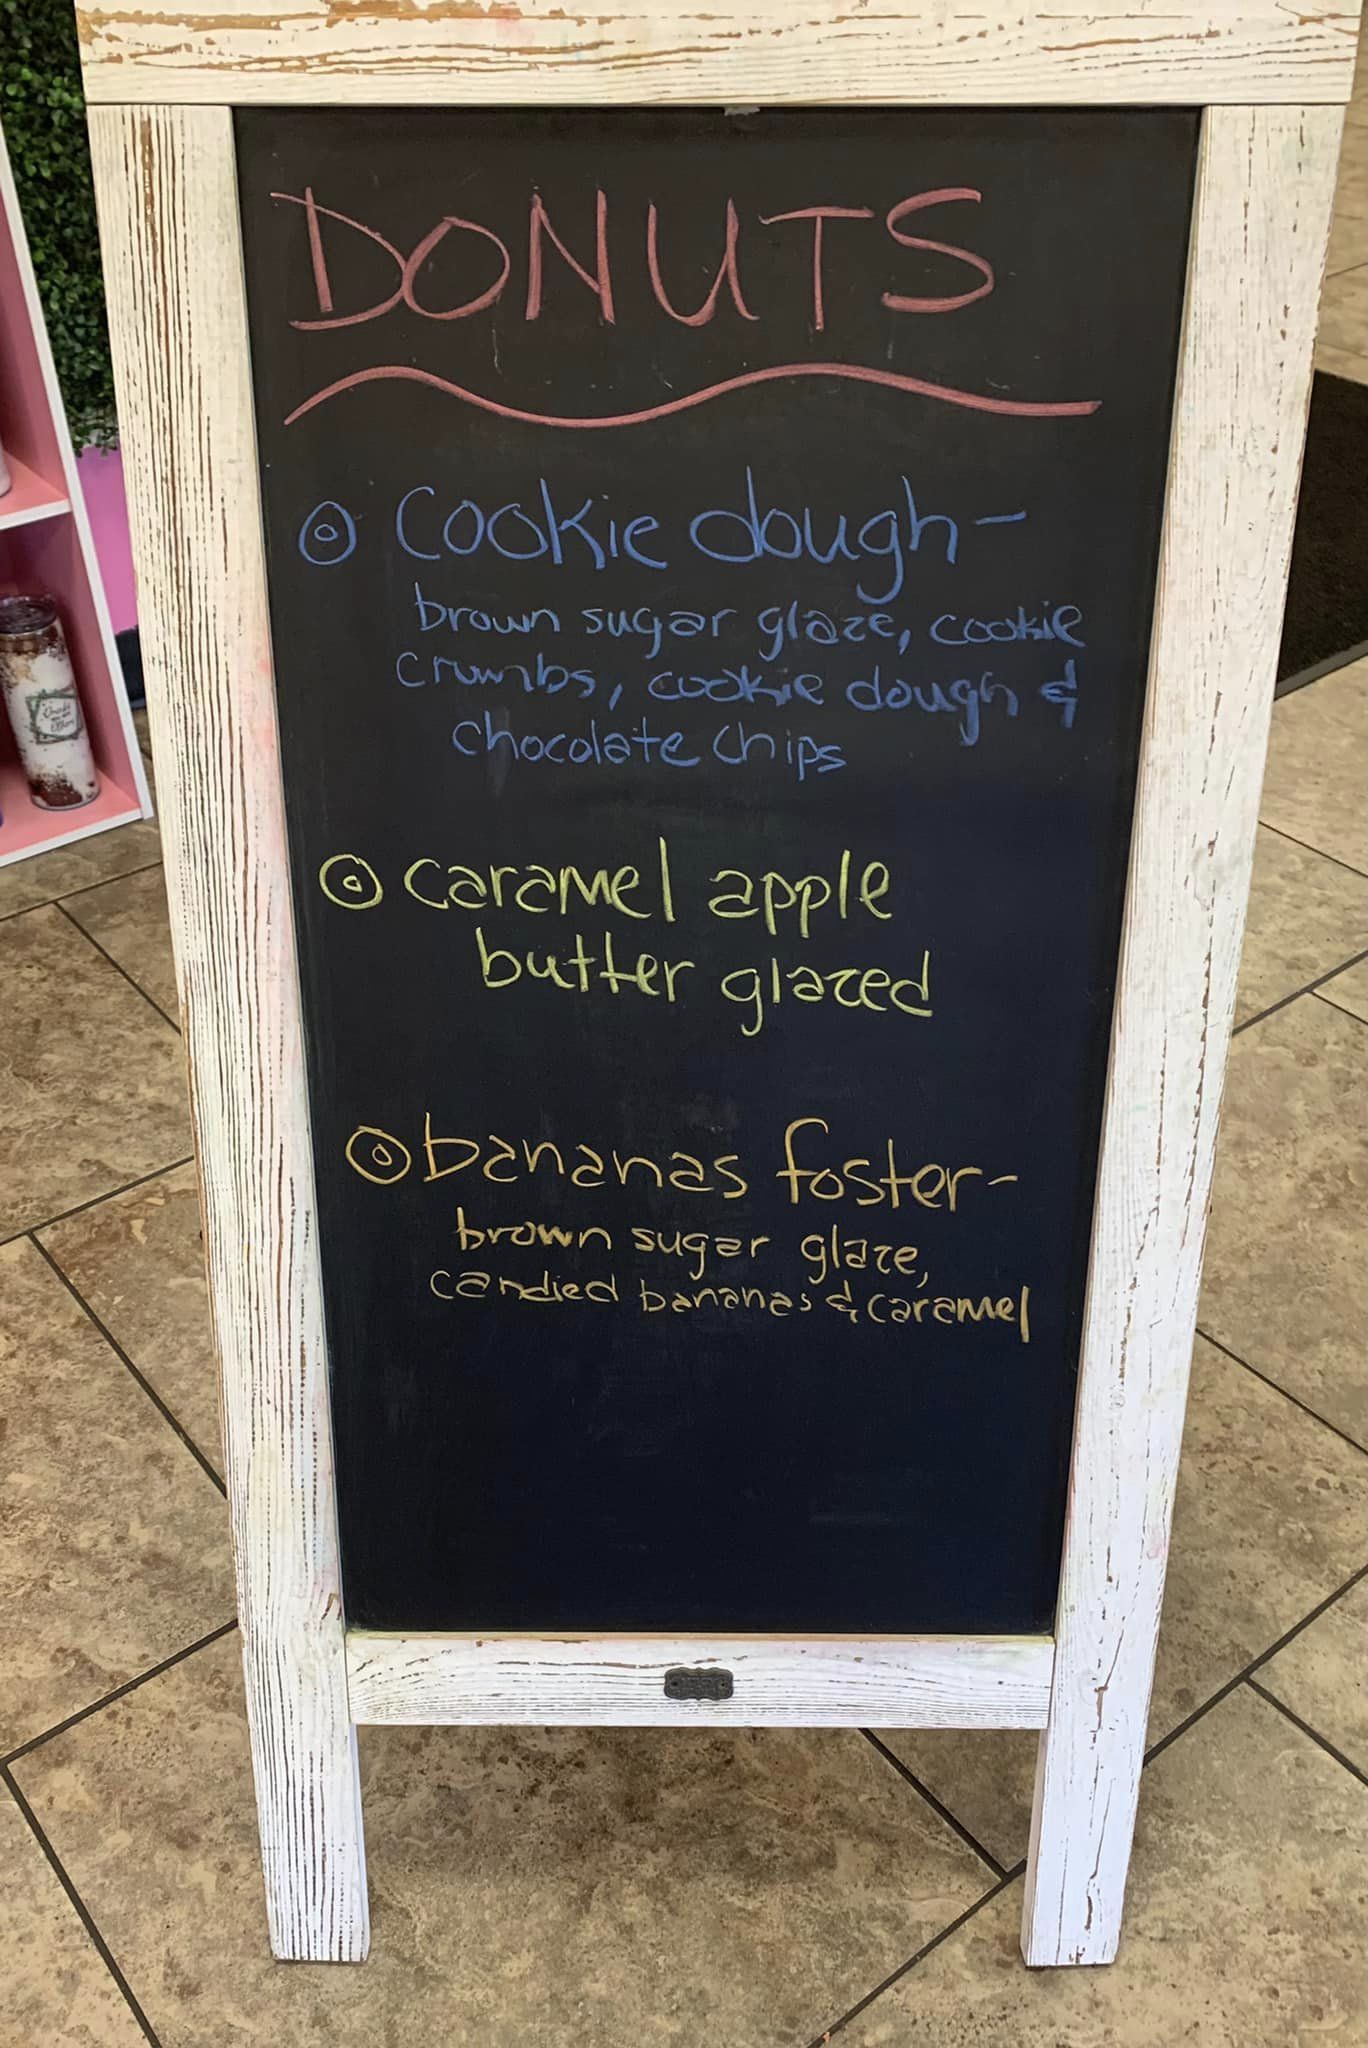 DONUTS
cookie dough-
brown sugar glaze, cookie
crumbs, cookie dough &
chocolate chips
caramel apple
butter glazed
bananas foster-
brown sugar glaze,
candied bananas & caramel